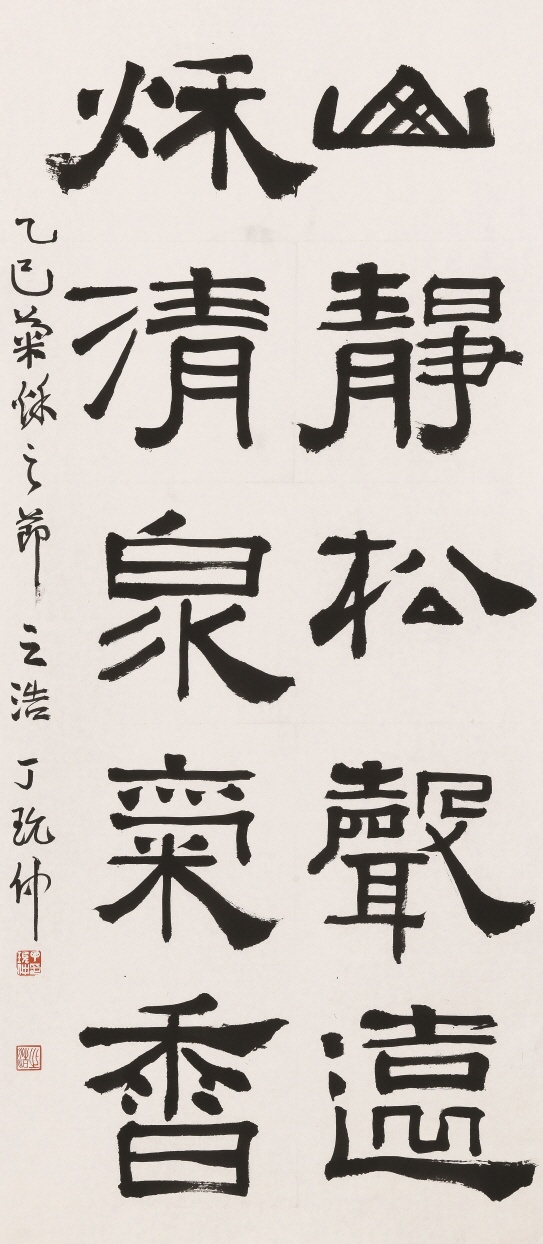 山靜松聲遠
秌清泉氣香
乙巳菊秌之節 之浩 丁玩仲